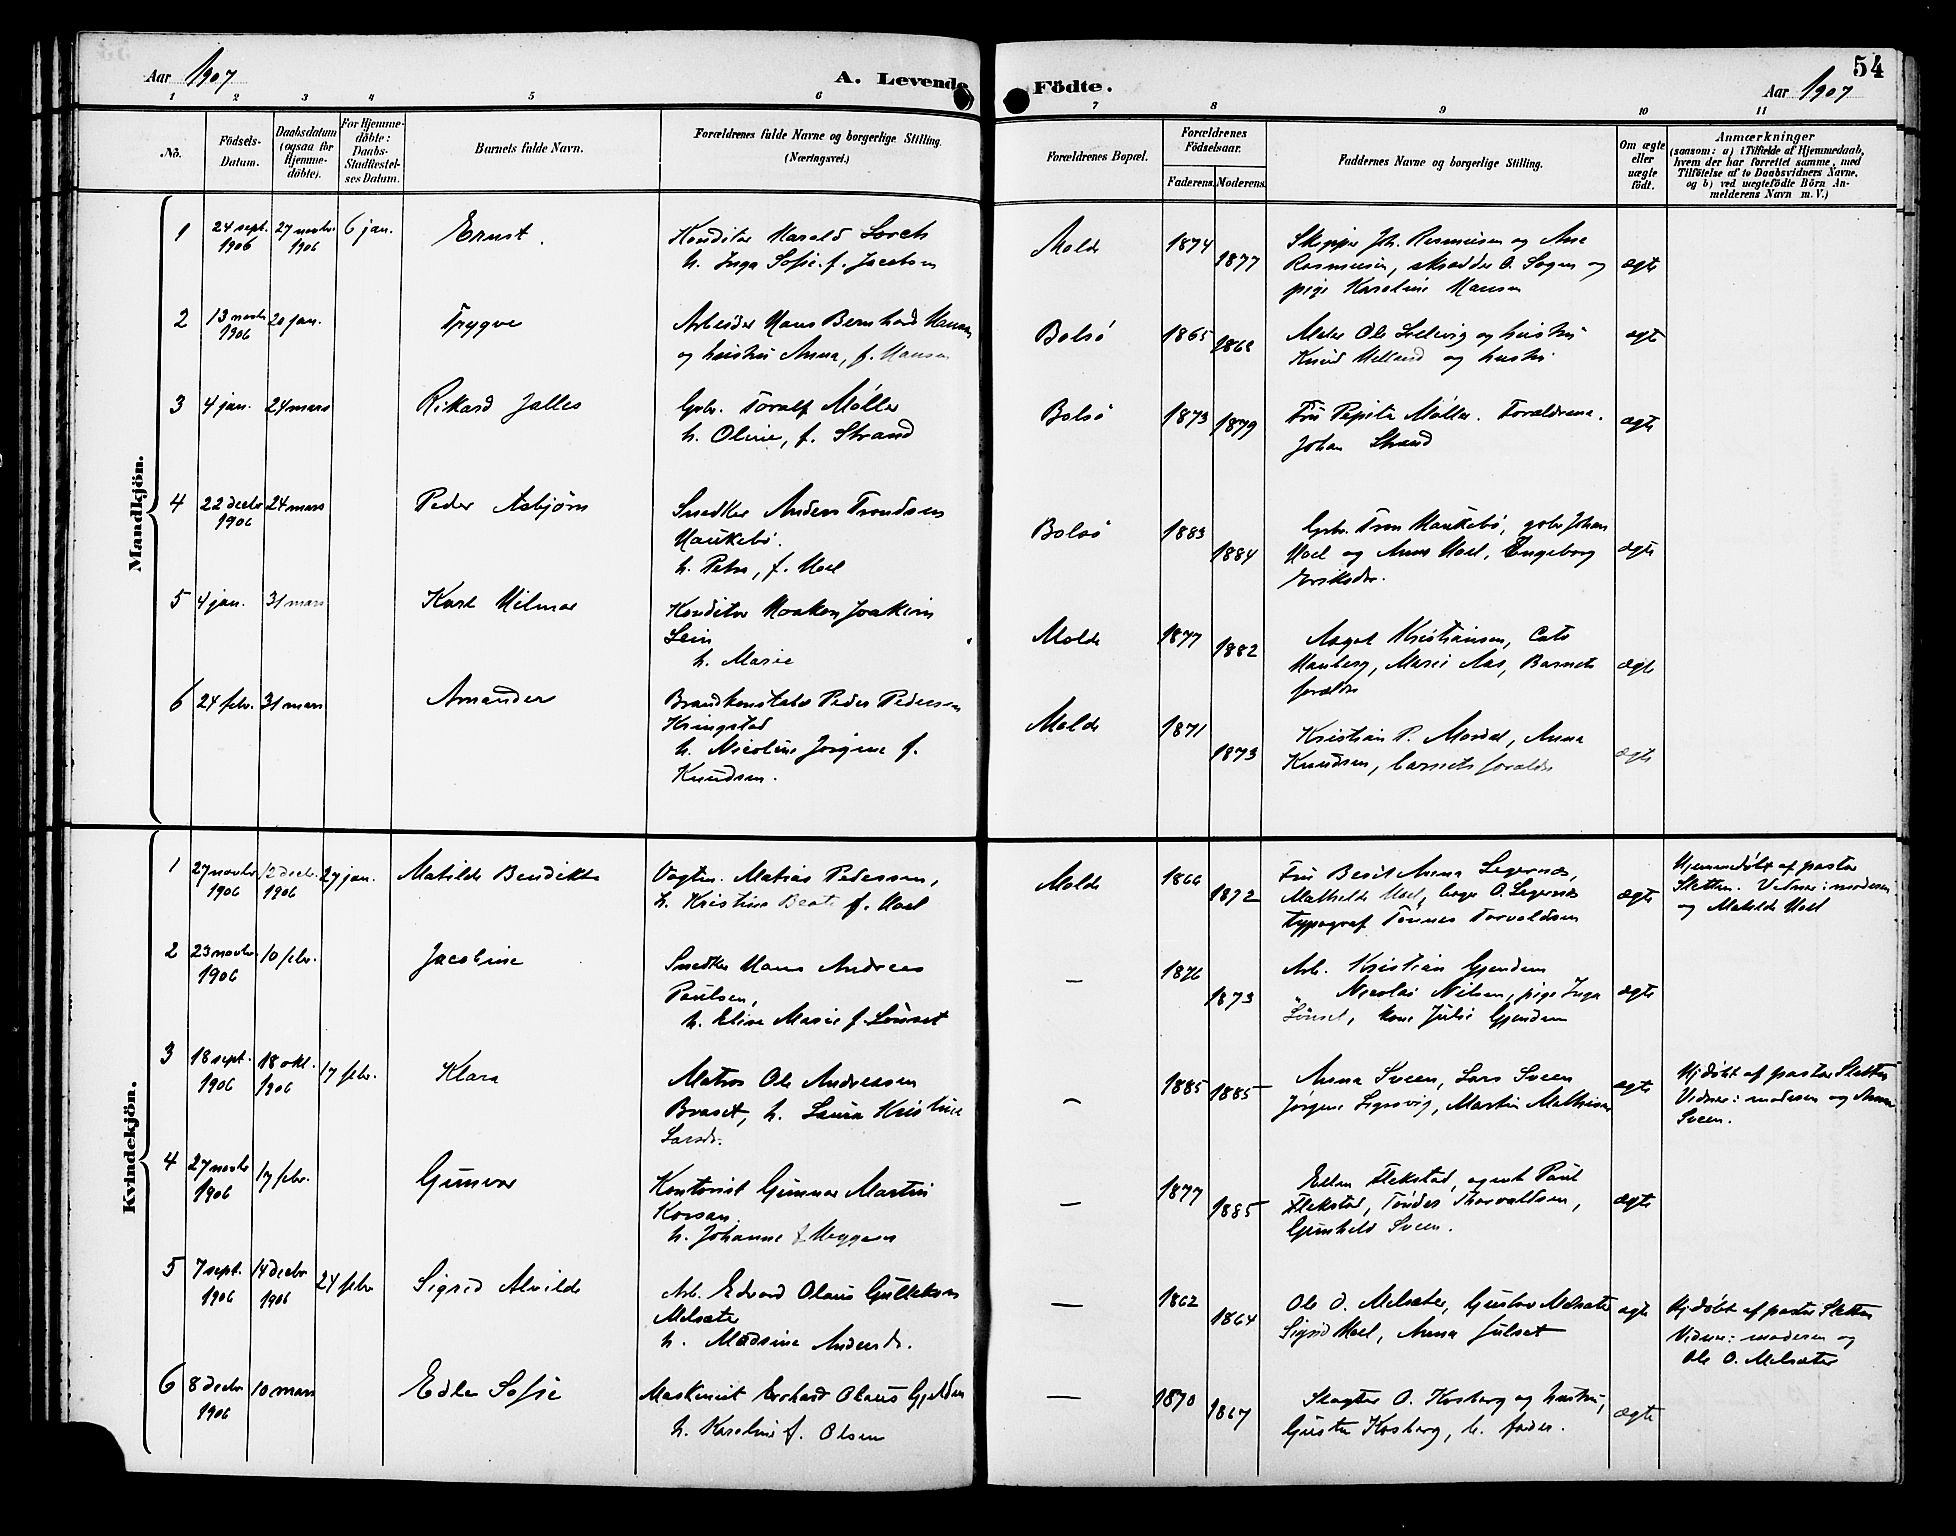 Aar 1907
A. Levende
Födte.
54
Aar 1907
1 2 3 4 5 6 7 8 9 10 11
No.
Födsels-
Datum.
Daabsdatum
(ogsaa for
Hjemme-
döbte).
For Hjemme-
döbte:
Daabs-
Stadfæstel-
ses Datum.
Barnets fulde Navn.
Forældrenes fulde Navne og borgerlige Stilling.
(Næringsvei.)
Forældrenes Bopæl.
Forældrenes
Födselsaar.
Faderens. Moderens.
Faddernes Navne og borgerlige Stilling.
Om ægte
eller
uægte
födt.
Anmærkninger
(saasom: a) i Tilfælde af Hjemmedaab,
hvem der har forrettet samme, med
Tilföielse af to Daabsvidners Navne,
og b) ved uægtefödte Börn An-
melderens Navn m. V.)
Mandkjön.
1 24 sept. 1906 27 novbr 1906 6 jan. Ernst.
Konditor Harald Lorch
h. Inga Sofie f. Jacobsen
Molde 1874 1877
Skipper Joh. Rasmussen og Ane
Rasmussen, skrædder O. Sogn og
pige Karoline Hansen
ægte
2 13 novbr 1906 20 jan. Trygve
Arbeider Hans Bernhard Hansen
og hustru Anna, f. Hansen
Bolsö 1865 1868
Maler Ole Solevig og hustru
Knud Helland og hustru
ægte
3 4 jan. 24 mars Rikard Jalles
Gbr. Toralf Møller
h. Oline, f. Strand
Bolsö 1873 1879
Fru Pepita Møller. Forældrene.
Johan Strand
ægte
4 22 decbr 1906 24 mars Peder Asbjørn
Snedker Anders Trondsen
Haukebö.
h. Petra, f. Hoel
Bolsö 1883 1884
Gbr. Tron Haukebö, gbr Johan
Hoel og Anne Hoel, Engeborg
Eriksdr.
ægte
5 4 jan. 31 mars Karl Hilmar
Konditor Haakon Joakim
Lein
h. Marie
Molde 1877 1882
Aagot Kristiansen, Cato
Hauberg, Marie Aas, Barnets
forældre
ægte
6 24 febr. 31 mars Amander
Brandkonstabel Peder Pedersen
Kringstad
h. Nicoline Jörgine f.
Knudsen.
Molde 1871 1873
Kristian P. Mordal, Anna
Knudsen, barnets forældre
ægte
Kvindekjön.
1 27 novbr 1906 12 decbr. 1906 27 jan. Matilde Bendikte
Vogtm. Matias Pedersen,
h. Kristine Beate f. Hoel
Molde 1866 1872
Fru Berit Anna Legernæs,
Mathilde Hoel, O. Legernæs
typograf Tönnes Torvaldsen
ægte
Hjemmedöbt af pastor
Sletten. Vidner: moderen
og Matilde Hoel
2 23 novbr 1906 10 febr. Jacobine
Snedker Hans Andreas
Paulsen,
h. Elise Marie f. Lönset
— 1876 1873
Arb. Kristian Gjendem
Nicolai Nilsen, pige Inga
Lönset, kone Julie Gjendem
ægte
3 18 sept. 1906 18 okt. 1906 17 febr. Klara
Matros Ole Andreassen
Braset, h. Laura Kristine
Larsdr.
— 1885 1885
Anna Sveen, Lars Sveen
Jørgine Ligsvig, Martin Mathisen
ægte
Hjdöbt af pastor Sletten
Vidner: moderen og Anna
Sveen.
4 27 novbr 1906 17 febr. Gunvor
Kontorist Gunnar Martin
Korsan
h. Johanne f Heggem
— 1877 1885
Ellen Flekstad, agent Paul
Flekstad, Töndes Thorvaldsen,
Gunhild Sveen.
ægte
5 7 sept. 1906 14 decbr 1906 24 febr Sigrid Alvilde
Arb. Edvard Olaus Gulleksen
Melsæter
h. Madsine Andersdr.
— 1862 1864
Ole O. Melsæter, Gustav Melsæter
Sigrid Hoel, Anna Julset
ægte
Hjdöbt af pastor Sletten
Vidner: moderen og
Ole O. Melsæter
6 8 decbr 1906 10 mars Edle Sofie
Maskinist Erchard Olaus Gjelden
h. Karoline f. Olsen
— 1870 1867
Slagter O. Kosberg og hustru,
Gusta Kosberg, b. fader.
ægte